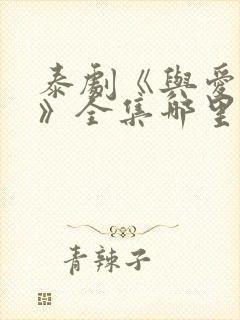 泰劇《與愛
》全集哪里
青辣子